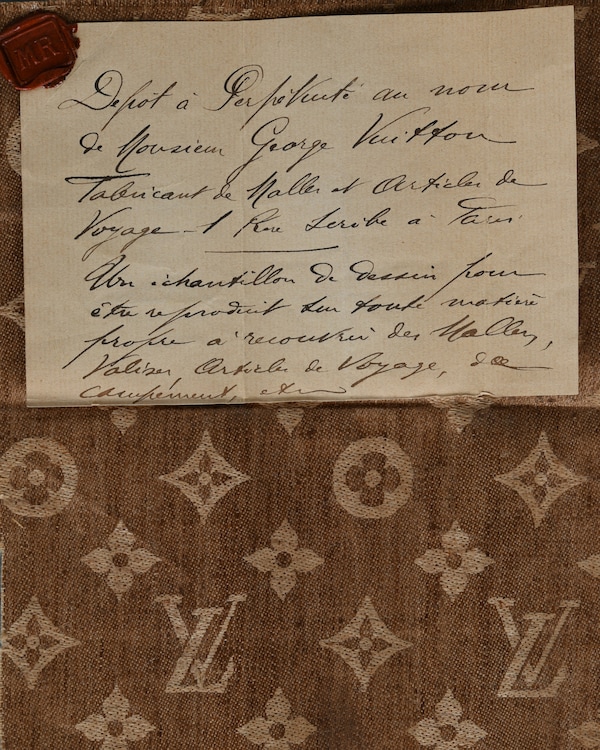 MR
Depot à Perpétuité au nom
de Monsieur George Vuitton
Fabricant de Malles et Articles de
Voyage - 1 Rue Scribe à Paris
Un échantillon de dessin pour
être reproduit sur toute matière
propre à recouvrir des Malles,
Valises Articles de Voyage, de
campément, etc
LV LV